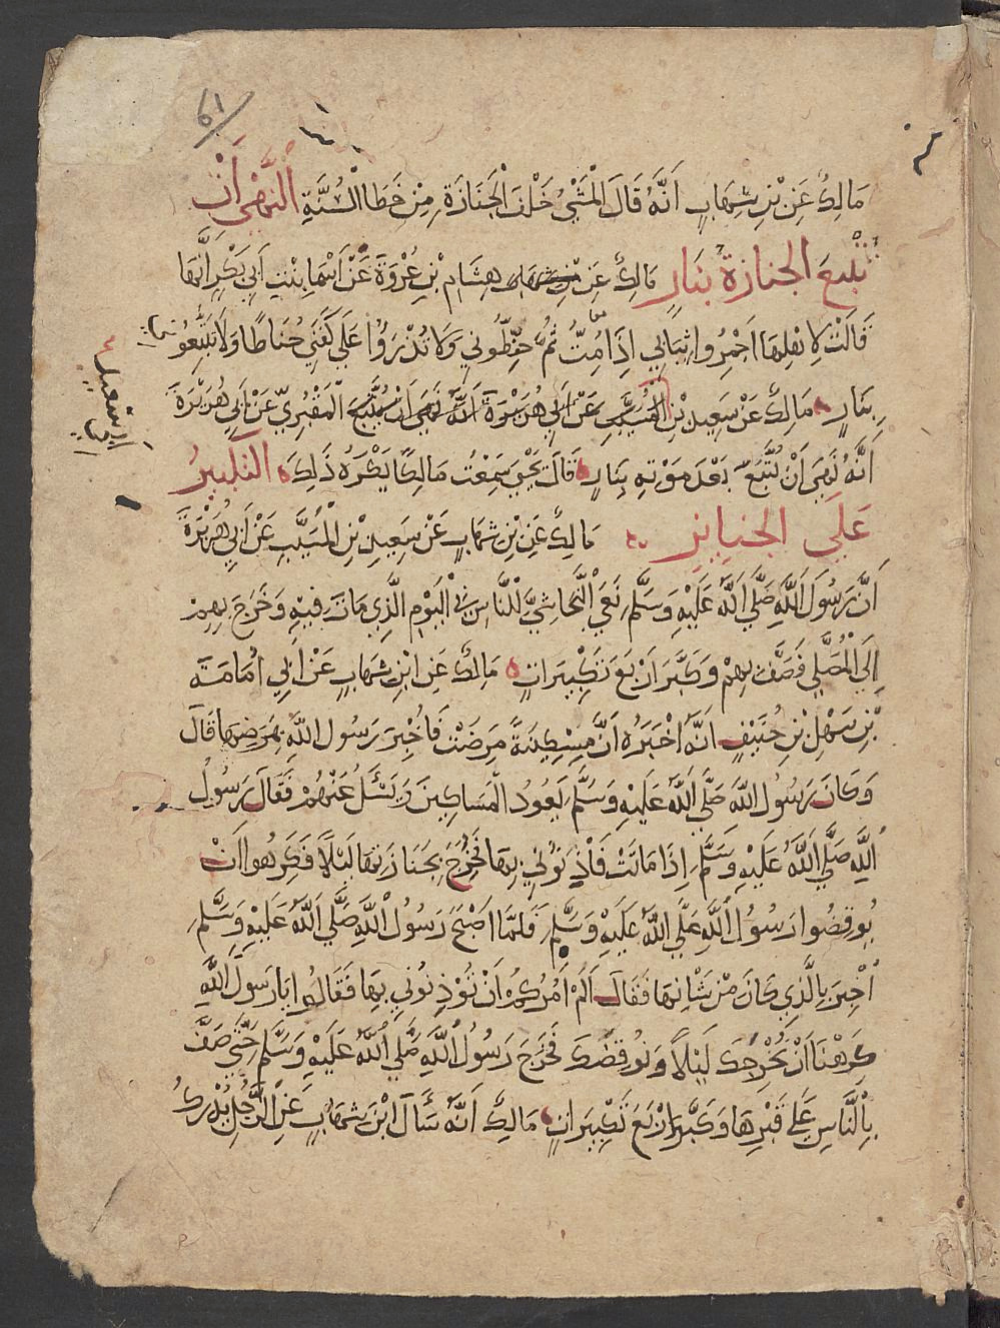 61
مَالِكٌ عَنِ بْنِ شِهَابٍ أَنَّهُ قَالَ الْمَشْيُ خَلْفَ الْجَنَازَةِ مِنْ خَطَإِ السُّنَّةِ النَّهْيُ أَنْ
تُتْبَعَ الجنازة بنَارٍ مَالِكٌ عَنْ هِشَامِ بْنِ عُرْوَةَ عَنْ أَسْمَا بِنْتِ أَبِي بَكْرٍ أَنَّهَا
قَالَتْ لِأَهْلِهَا أَجْمِرُوا ثِيَابِي إِذَا مُتُّ ثُمَّ حَنِّطُونِي وَلَا تَذْرُؤُا عَلَى كَفَنِي حُنَاطًا وَلَا تَتَّبِعُونِي
بِنَارٍ مَالِكٌ عَنْ سَعِيدِ بْنِ الْمُسَيَّبِ عَنْ أَبِي هُرَيْرَةَ أَنَّهُ نَهَى أَنْ يُتَّبَعَ الْمَقْبُرِيِّ عَنْ أَبِي هُرَيْرَةَ
أبي سعيد
أَنَّهُ نَهَى أَنْ يُتَّبَعَ بَعْدَ مَوْتِهِ بِنَارٍ قَالَ يَحْيَى سَمِعْتُ مَالِكًا يَكْرَهُ ذَلِكَ التكبيرُ
عَلَى الجنايز مَالِكٌ عَنِ بْنِ شِهَابٍ عَنْ سَعِيدِ بْنِ الْمُسَيَّبِ عَنْ أَبِي هُرَيْرَةَ
أَنَّ رَسُولَ اللَّهِ صَلَّى اللَّهُ عَلَيْهِ وَسَلَّمَ نَعَى النَّجَاشِيَّ لِلنَّاسِ فِي الْيَوْمِ الَّذِي مَاتَ فِيهِ وَخَرَجَ بِهِمْ
إِلَى الْمُصَلَّى فَصَفَّ بِهِمْ وَكَبَّرَ أَرْبَعَ تَكْبِيرَاتٍ مَالِكٌ عَنِ ابْنِ شِهَابٍ عَنْ أَبِي أُمَامَةَ
بْنِ سَهْلِ بْنِ حُنَيْفٍ أَنَّهُ أَخْبَرَهُ أَنَّ مِسْكِينَةً مَرِضَتْ فَأُخْبِرَ رَسُولُ اللَّهِ بِمَرَضِهَا قَالَ
وَكَانَ رَسُولُ اللَّهِ صَلَّى اللَّهُ عَلَيْهِ وَسَلَّمَ يَعُودُ الْمَسَاكِينَ وَيَسْئَلُ عَنْهُمْ فَقَالَ رَسُولُ
اللَّهِ صَلَّى اللَّهُ عَلَيْهِ وَسَلَّمَ إِذَا مَاتَتْ فَآذِنُونِي بِهَا فَخُرِجَ بِجَنَازَتِهَا لَيْلًا فَكَرِهُوا أَنْ
يُوقِضُوا رَسُولَ اللَّهِ صَلَّى اللَّهُ عَلَيْهِ وَسَلَّمَ فَلَمَّا أَصْبَحَ رَسُولُ اللَّهِ صَلَّى اللَّهُ عَلَيْهِ وَسَلَّمَ
أُخْبِرَ بِالَّذِي كَانَ مِنْ شَانِهَا فَقَالَ أَلَمْ آمُرْكُمْ أَنْ تُؤْذِنُونِي بِهَا فَقَالُوا يَا رَسُولَ اللَّهِ
كَرِهْنَا أَنْ نُخْرِجَكَ لَيْلًا وَنُوقِضَكَ فَخَرَجَ رَسُولُ اللَّهِ صَلَّى اللَّهُ عَلَيْهِ وَسَلَّمَ حَتَّى صَفَّ
بِالنَّاسِ عَلَى قَبْرِهَا وَكَبَّرَ أَرْبَعَ تَكْبِيرَاتٍ مَالِكٌ أَنَّهُ سَأَلَ ابْنَ شِهَابٍ عَنِ الرَّجُلِ يُدْرِكُ